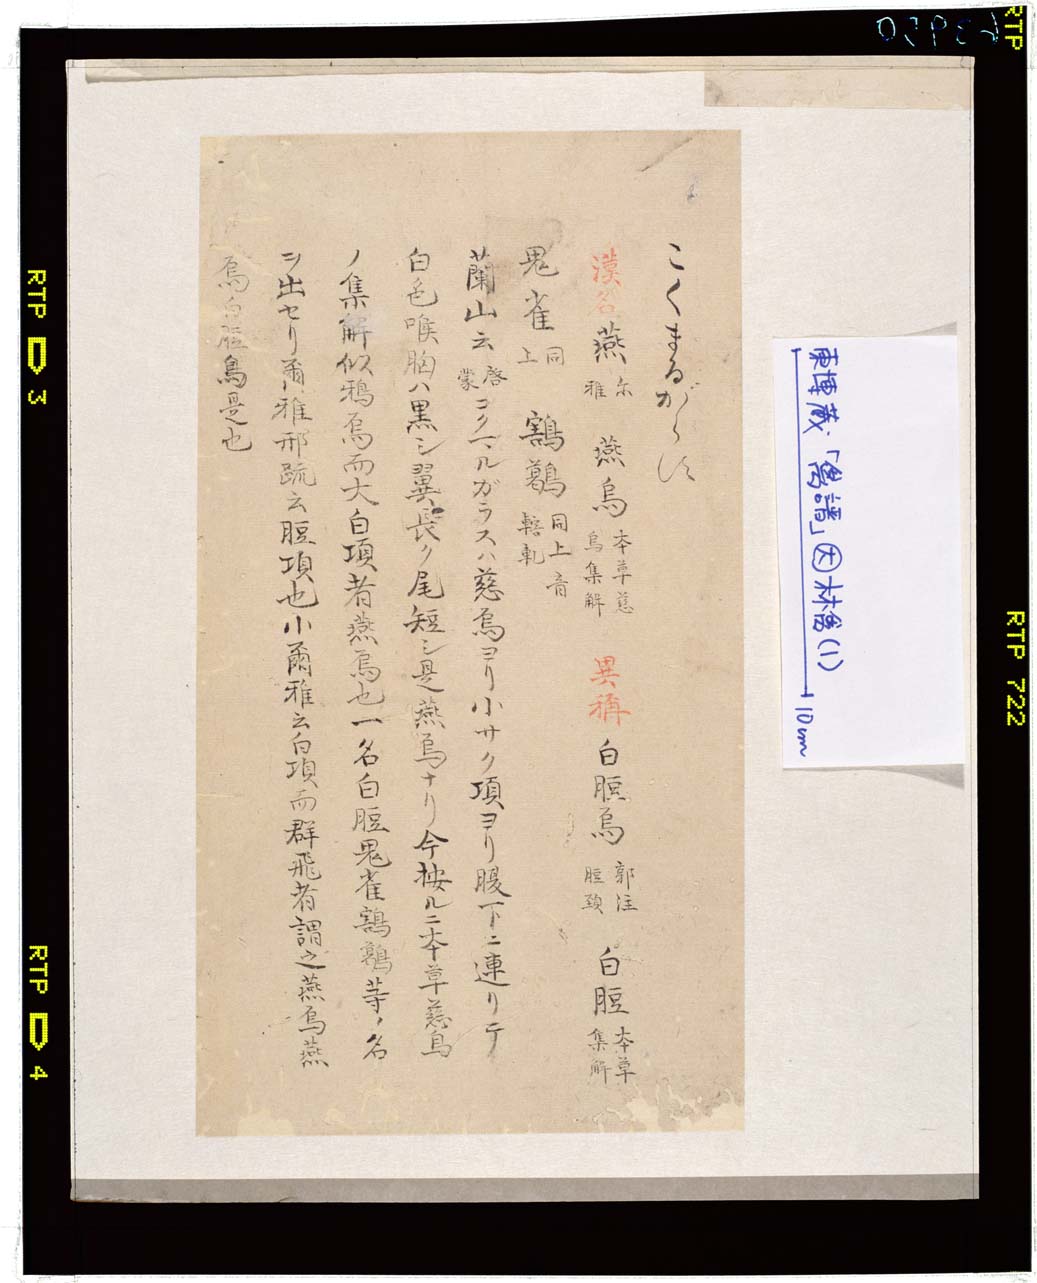 こくまるがらす
漢名 燕 尓雅 燕烏 本草慈烏集解 異稱 白脰烏 郭注脰頚 白脰 本草集解
鬼雀 同上 鶷鶷 同上音轄軋
蘭山云 啓蒙 コクマルガラスハ慈烏ヨリ小サク項ヨリ腹下ニ連リテ
白色喉胸ハ黒シ翼長ク尾短シ是燕烏ナリ今按ルニ本草慈烏
ノ集解似鴉烏而大白項者燕烏也一名白脰鬼雀鶷鶷等ノ名
ヲ出セリ爾雅邢疏云脰項也小爾雅云白項而群飛者謂之燕烏燕
烏白脰烏是也
東博蔵「鳥譜」 材質(1)
10cm
RTP 3
RTP 4
RTP 722
RTP